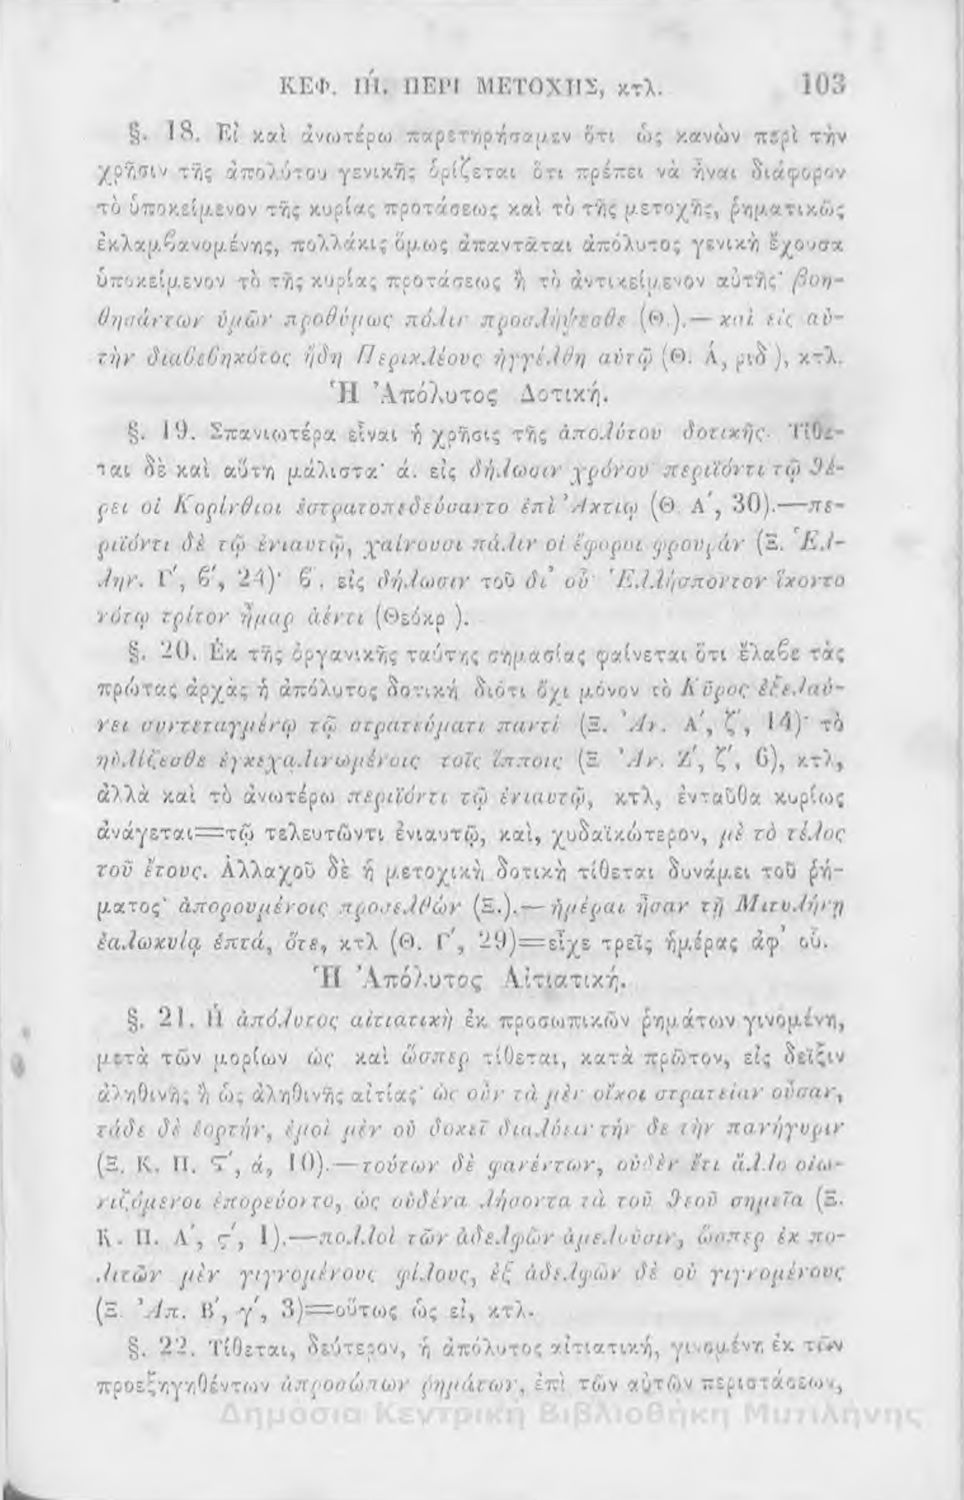 ΚΕΦ. ΙΙΙ. ΠΕΡΙ ΜΕΤΟΧΗΣ, κτλ. 103
§. 18. Εἰ καὶ ἀνωτέρω παρετηρήσαμεν ὅτι ὡς κανὼν περὶ τὴν
χρῆσιν τῆς ἀπολύτου γενικῆς ὁρίζεται ὅτι πρέπει νὰ ἦναι διάφορον
τὸ ὑποκείμενον τῆς κυρίας προτάσεως καὶ τὸ τῆς μετοχῆς, ῥηματικῶς
ἐκλαμβανομένης, πολλάκις ὅμως ἀπαντᾶται ἀπόλυτος γενικὴ ἔχουσα
ὑποκείμενον τὸ τῆς κυρίας προτάσεως ἢ τὸ ἀντικείμενον αὐτῆς· βοη-
θησάντων ὑμῶν προθύμως πόλιν προσλήψεσθε (Θ.).— καὶ εἰς αὐ-
τὴν διαβεβηκότος ἤδη Περικλέους ἠγγέλθη αὐτῷ (Θ. Ά, ριδ΄), κτλ.
Ἡ Ἀπόλυτος Δοτική.
§. 19. Σπανιωτέρα εἶναι ἡ χρῆσις τῆς ἀπολύτου δοτικῆς. Τίθε-
ται δὲ καὶ αὕτη μάλιστα· ά. εἰς δήλωσιν χρόνου περιϊόντι τῷ θέ-
ρει οἱ Κορίνθιοι ἐστρατοπεδεύσαντο ἐπὶ Ἀκτίῳ (Θ. Α΄, 30).—πε-
ριϊόντι δὲ τῷ ἐνιαυτῷ, χαίνουσι πάλιν οἱ ἔφοροι φρουρὰν (Ξ. Ἑλ-
λην. Γ΄, β΄, 24)· β΄. εἰς δήλωσιν τοῦ δι᾿ οὗ· Ἑλλήσποντον ἵκοντο
νότῳ τρίτον ἦμαρ ἀέντι (Θεόκρ.).
§. 20. Ἐκ τῆς ὀργανικῆς ταύτης σημασίας φαίνεται ὅτι ἔλαβε τὰς
πρώτας ἀρχὰς ἡ ἀπόλυτος δοτική· διότι ὄχι μόνον τὸ Κῦρος ἐξελαύ-
νει συντεταγμένῳ τῷ στρατεύματι παντί (Ξ. Ἀν. Α΄, ζ΄, 14)· τὸ
ηὐλίζεσθε ἐγκεχαλινωμένοις τοῖς ἵπποις (Ξ. Ἀν. Ζ΄, ζ΄, 6), κτλ,
ἀλλὰ καὶ τὸ ἀνωτέρω περιϊόντι τῷ ἐνιαυτῷ, κτλ, ἐνταῦθα κυρίως
ἀνάγεται=τῷ τελευτῶντι ἐνιαυτῷ, καὶ, χυδαϊκώτερον, μὲ τὸ τέλος
τοῦ ἔτους. Ἀλλαχοῦ δὲ ἡ μετοχικὴ δοτικὴ τίθεται δυνάμει τοῦ ῥή-
ματος· ἀπορουμένοις προσελθὼν (Ξ.).—ἡμέραι ἦσαν τῇ Μιτυλήνῃ
ἑαλωκυίᾳ ἑπτά, ὅτε, κτλ (Θ. Γ΄, 29)=εἶχε τρεῖς ἡμέρας ἀφ᾿ οὗ.
Ἡ Ἀπόλυτος Αἰτιατική.
§. 21. Ἡ ἀπόλυτος αἰτιατικὴ ἐκ προσωπικῶν ῥημάτων γινομένη,
μετὰ τῶν μορίων ὡς καὶ ὥσπερ τίθεται, κατὰ πρῶτον, εἰς δεῖξιν
ἀληθινῆς ἢ ὡς ἀληθινῆς αἰτίας· ὡς οὖν τὰ μὲν οἴκοι στρατείαν οὖσαν,
τάδε δὲ ἑορτήν, ἐμοὶ μὲν οὐ δοκεῖ διαλύειν τὴν δε τὴν πανήγυριν
(Ξ. Κ. Π. ΣΤ΄, ά, 10).—τούτων δὲ φανέντων, οὐδὲν ἔτι ἄλλο οἰω-
νιζόμενοι ἐπορεύοντο, ὡς οὐδένα λήσοντα τὰ τοῦ θεοῦ σημεῖα (Ξ.
Κ. Π. Α΄, ς΄, 1).—πολλοὶ τῶν ἀδελφῶν ἀμελοῦσιν, ὥσπερ ἐκ πο-
λιτῶν μὲν γιγνομένους φίλους, ἐξ ἀδελφῶν δὲ οὐ γιγνομένους
(Ξ. Ἀπ. Β΄, γ΄, 3)=οὕτως ὡς εἰ, κτλ.
§. 22. Τίθεται, δεύτερον, ἡ ἀπόλυτος αἰτιατική, γινομένη ἐκ τῶν
προεξηγηθέντων ἀπροσώπων ῥημάτων, ἐπὶ τῶν αὐτῶν περιστάσεων,
Δημόσια Κεντρική Βιβλιοθήκη Μυτιλήνης